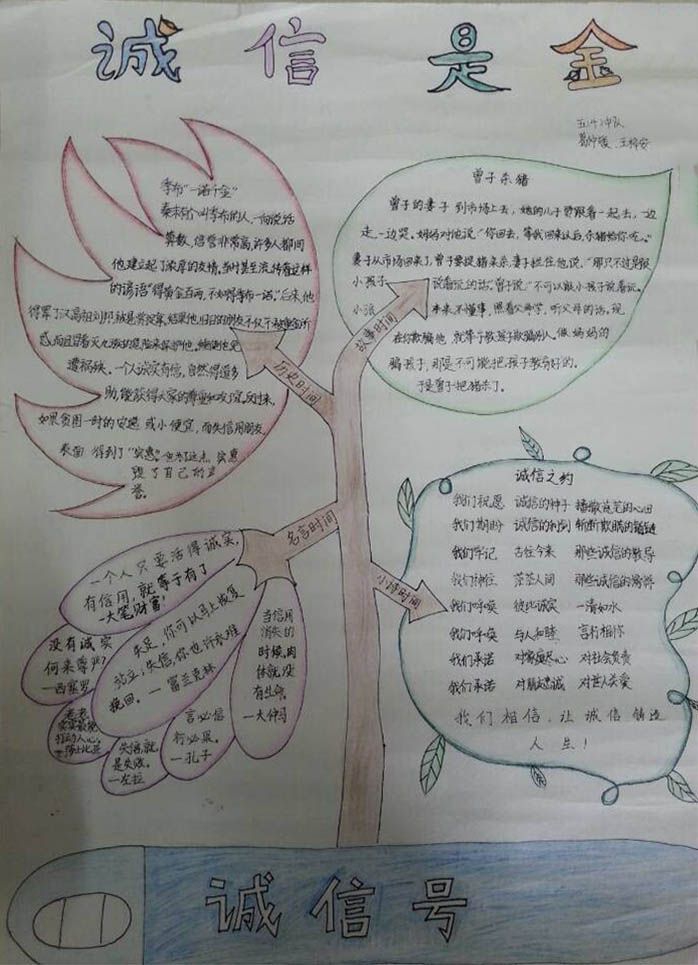 诚信是金
五4中队
曾子杀猪
曾子的妻子到市场上去，她的儿子要跟着一起去，一边
走，一边哭。妈妈对他说："你回去，等我回来以后，杀猪给你吃。"
妻子从市场回来了，曾子要捉猪来杀，妻子拦住他说，"那只不过是跟
小孩子说着玩的话。"曾子说："不可以跟小孩子说着玩。
小孩本来不懂事，照着父母学，听父母的话，现
在你欺骗他，就等于教孩子欺骗别人。做妈妈的
骗孩子，那是不可能把孩子教育好的。
于是曾子把猪杀了。
故事时间
季布"一诺千金"
秦末有个叫季布的人，一向说话
算数，信誉非常高，许多人都同
他建立起了浓厚的友情。当时甚至流传着这样
的谚语："得黄金百两，不如得季布一诺。"后来，他
得罪了汉高祖刘邦，被悬赏捉拿。结果他旧日的朋友不仅不被重金所
惑，而且冒着灭九族的危险来保护他，
遭祸殃。一个人诚实有信，自然得道多
助，能获得大家的尊重和友谊。反过来，
如果贪图一时的安逸或小便宜，而失信用朋友
表面得到了"实惠"。但为了这点实惠
毁了自己的声
誉。
历史时间
名言时间
一个人只要活得诚实，
有信用，就等于有了
一大笔财富！
没有诚实
何来尊严？
—西塞罗
失足，你可以马上恢复
站立；失信，你也许永难
挽回。—富兰克林
当信用
消失的
时候，肉
体就没
有生命。
—大仲马
老老
实实最能
打动人心。
—莎士比亚
失信就
是失败。
—左拉
言必信
行必果。
—孔子
小诗时间
诚信之约
我们祝愿 诚信的种子 播散茫茫的心田
我们期盼 诚信的利剑 斩断欺瞒的锁链
我们牢记 古往今来 那些诚信的教导
我们神往 茫茫人间 那些诚信的
我们呼唤 彼此诚实 一清如水
我们呼唤 与人和睦 言行相依
我们承诺 对家庭尽心 对社会负责
我们承诺 对朋友忠诚 对世人关爱
我们相信，让诚信铸造
人生！
诚信号